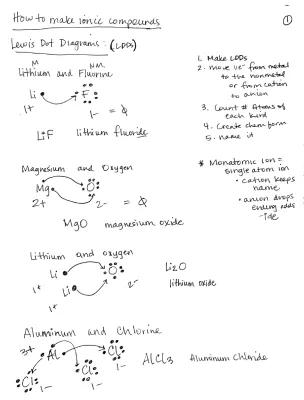 How to make ionic compounds
①
Lewis Dot Diagrams: (LDDs)
M NM
Lithium and Fluorine
Li F
1+ 1- = Ø
LiF lithium fluoride
1. Make LDDs
2. move ve- from metal
to the nonmetal
or from cation
to anion
3. Count # Atoms of
each kind
4. Create chem form
5. name it
Magnesium and Oxygen
Mg O
2+ 2- = Ø
MgO magnesium oxide
* Monatomic ion =
single atom ion
• cation keeps
name
• anion drops
ending adds
-ide
Lithium and oxygen
Li O Li2O
1+ Li 2- lithium oxide
1+
Aluminum and Chlorine
3+ Al Cl AlCl3 Aluminum Chloride
1-
Cl Cl
1- 1-